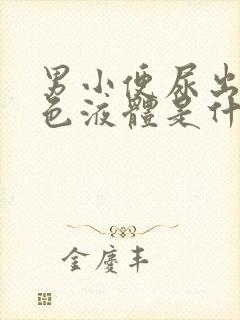 男小便尿出
色液體是什
金慶丰